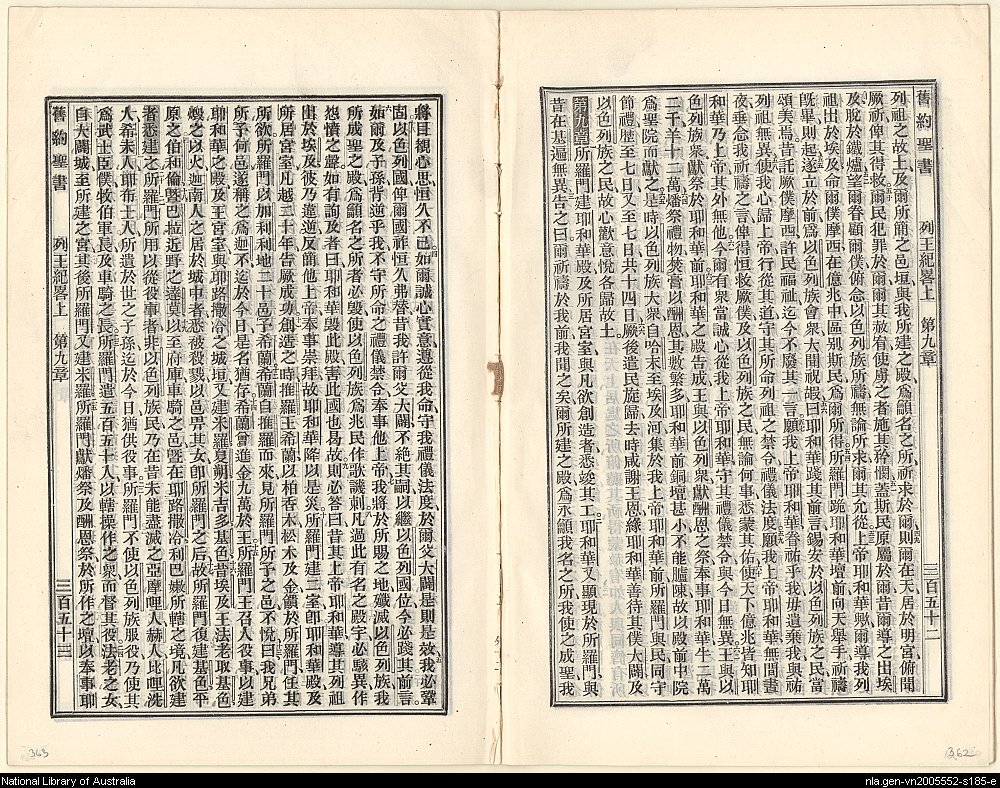 舊約聖書 列王紀畧上 第九章 三百五十二
列祖之故土及爾所簡之邑垣與我所建之殿爲籲名之所祈求於爾則爾在天居於明宮俯聞
厥祈俾其得牧爾民犯罪於爾爾其赦宥使虜之者施其矜憫蓋斯民原屬於爾昔爾導之出埃
及脫於鐵爐望爾眷顧爾僕俯念以色列族所禱無論所求爾其允從上帝耶和華歟爾導我列
祖出於埃及命爾僕摩西在億兆中區别斯民爲爾所得所羅門跪耶和華壇前向天舉手祈禱
既畢則起遂立於前爲以色列族會衆大聞祝嘏曰耶和華踐其前言錫安於以色列族之民當
頌美焉昔託厥僕摩西許民福祉迄今不廢其一言願我上帝耶和華眷祐乎我毋遺棄我與祐
列祖無異使我心歸上帝行從其道守其所命列祖之禁令禮儀法度願我上帝耶和華無間晝
夜垂念我祈禱之言俾得恒救厥僕及以色列族之民無論何事悉蒙其佑使天下億兆皆知耶
和華乃上帝其外無他今爾有衆當誠心從我上帝耶和華守其禮儀禁令與今日無異王與以
色列族衆獻祭於耶和華前耶和華之殿告成王與以色列衆獻酬恩之祭奉事耶和華牛二萬
二千羊十二萬燔祭禮物焚膏以酬恩其數繁多耶和華前銅壇甚小不能臚陳故以殿前中院
爲聖院而獻之是時以色列族大衆自哈末至埃及河集於我上帝耶和華前所羅門與民同守
節禮歷至七日又至七日共十四日厥後遣民旋歸去時咸謝王恩緣耶和華善待其僕大闢及
以色列族之民故心歡意悅各歸故土
第九章所羅門建耶和華殿及所居宮室與凡欲創造者悉竣其工耶和華又顯現於所羅門與
昔在基遍無異告之曰爾祈禱於我前我聞之矣爾所建之殿爲永籲我名之所我使之成聖我
舊約聖書 列王紀畧上 第九章 三百五十三
將目視心思恒久不已如爾誠心實意遵從我命守我禮儀法度於爾父大闢是則是效我必鞏
固以色列國俾爾國祚恒久弗替昔我許爾父大闢不絕其嗣以繼以色列國位今必踐其前言
如爾及子孫背逆乎我不守所命之禮儀禁令奉事他上帝我將於所賜之地殲滅以色列族我
所成聖之殿爲籲名之所者必毀使以色列族爲兆民作歌譏刺凡過此有名之殿宇必駭異作
怨憤之聲如有詢及者曰耶和華毀此殿害此國也曷故則必答曰昔其上帝耶和華導其列祖
出於埃及彼乃違逆反簡他上帝奉事崇拜故耶和華降以是災所羅門建二室卽耶和華殿及
所居宮室凡越二十年告厥成功創造之時推羅王希蘭以柏香木松木及金饋於所羅門任其
所欲所羅門以加利利地二十邑予希蘭希蘭自推羅而來見所羅門所予之邑不悅曰我兄弟
所予何邑遂稱之爲迦不迄於今日是名猶存希蘭曾進金九萬於王所羅門王召人役事以建
耶和華之殿及王宮室與耶路撒冷之城垣又建米羅夏朔米吉多基色昔埃及王法老取基色
燬之以火迦南人之居於城中者悉被殺戮以邑畀其女卽所羅門之后故所羅門復建基色平
原之伯和倫曁巴拉近野之達莫以至府庫車騎之邑曁在耶路撒冷利巴嫩所轄之境凡欲建
者悉建之所羅門所用以從役事者非以色列族民乃在昔未能盡滅之亞摩哩人赫人比哩洗
人希未人耶布士人所遺於世之子孫迄於今日猶供役事所羅門不使以色列族服役乃使其
爲武士臣僕牧伯軍長及車騎之長所羅門遣五百五十人以轄操作之衆而督其役法老之女
自大闢城至所建之宮其後所羅門又建米羅所羅門獻燔祭及酬恩祭於所作之壇以奉事耶
363
362
National Library of Australia
nla.gen-vn2005552-s185-e